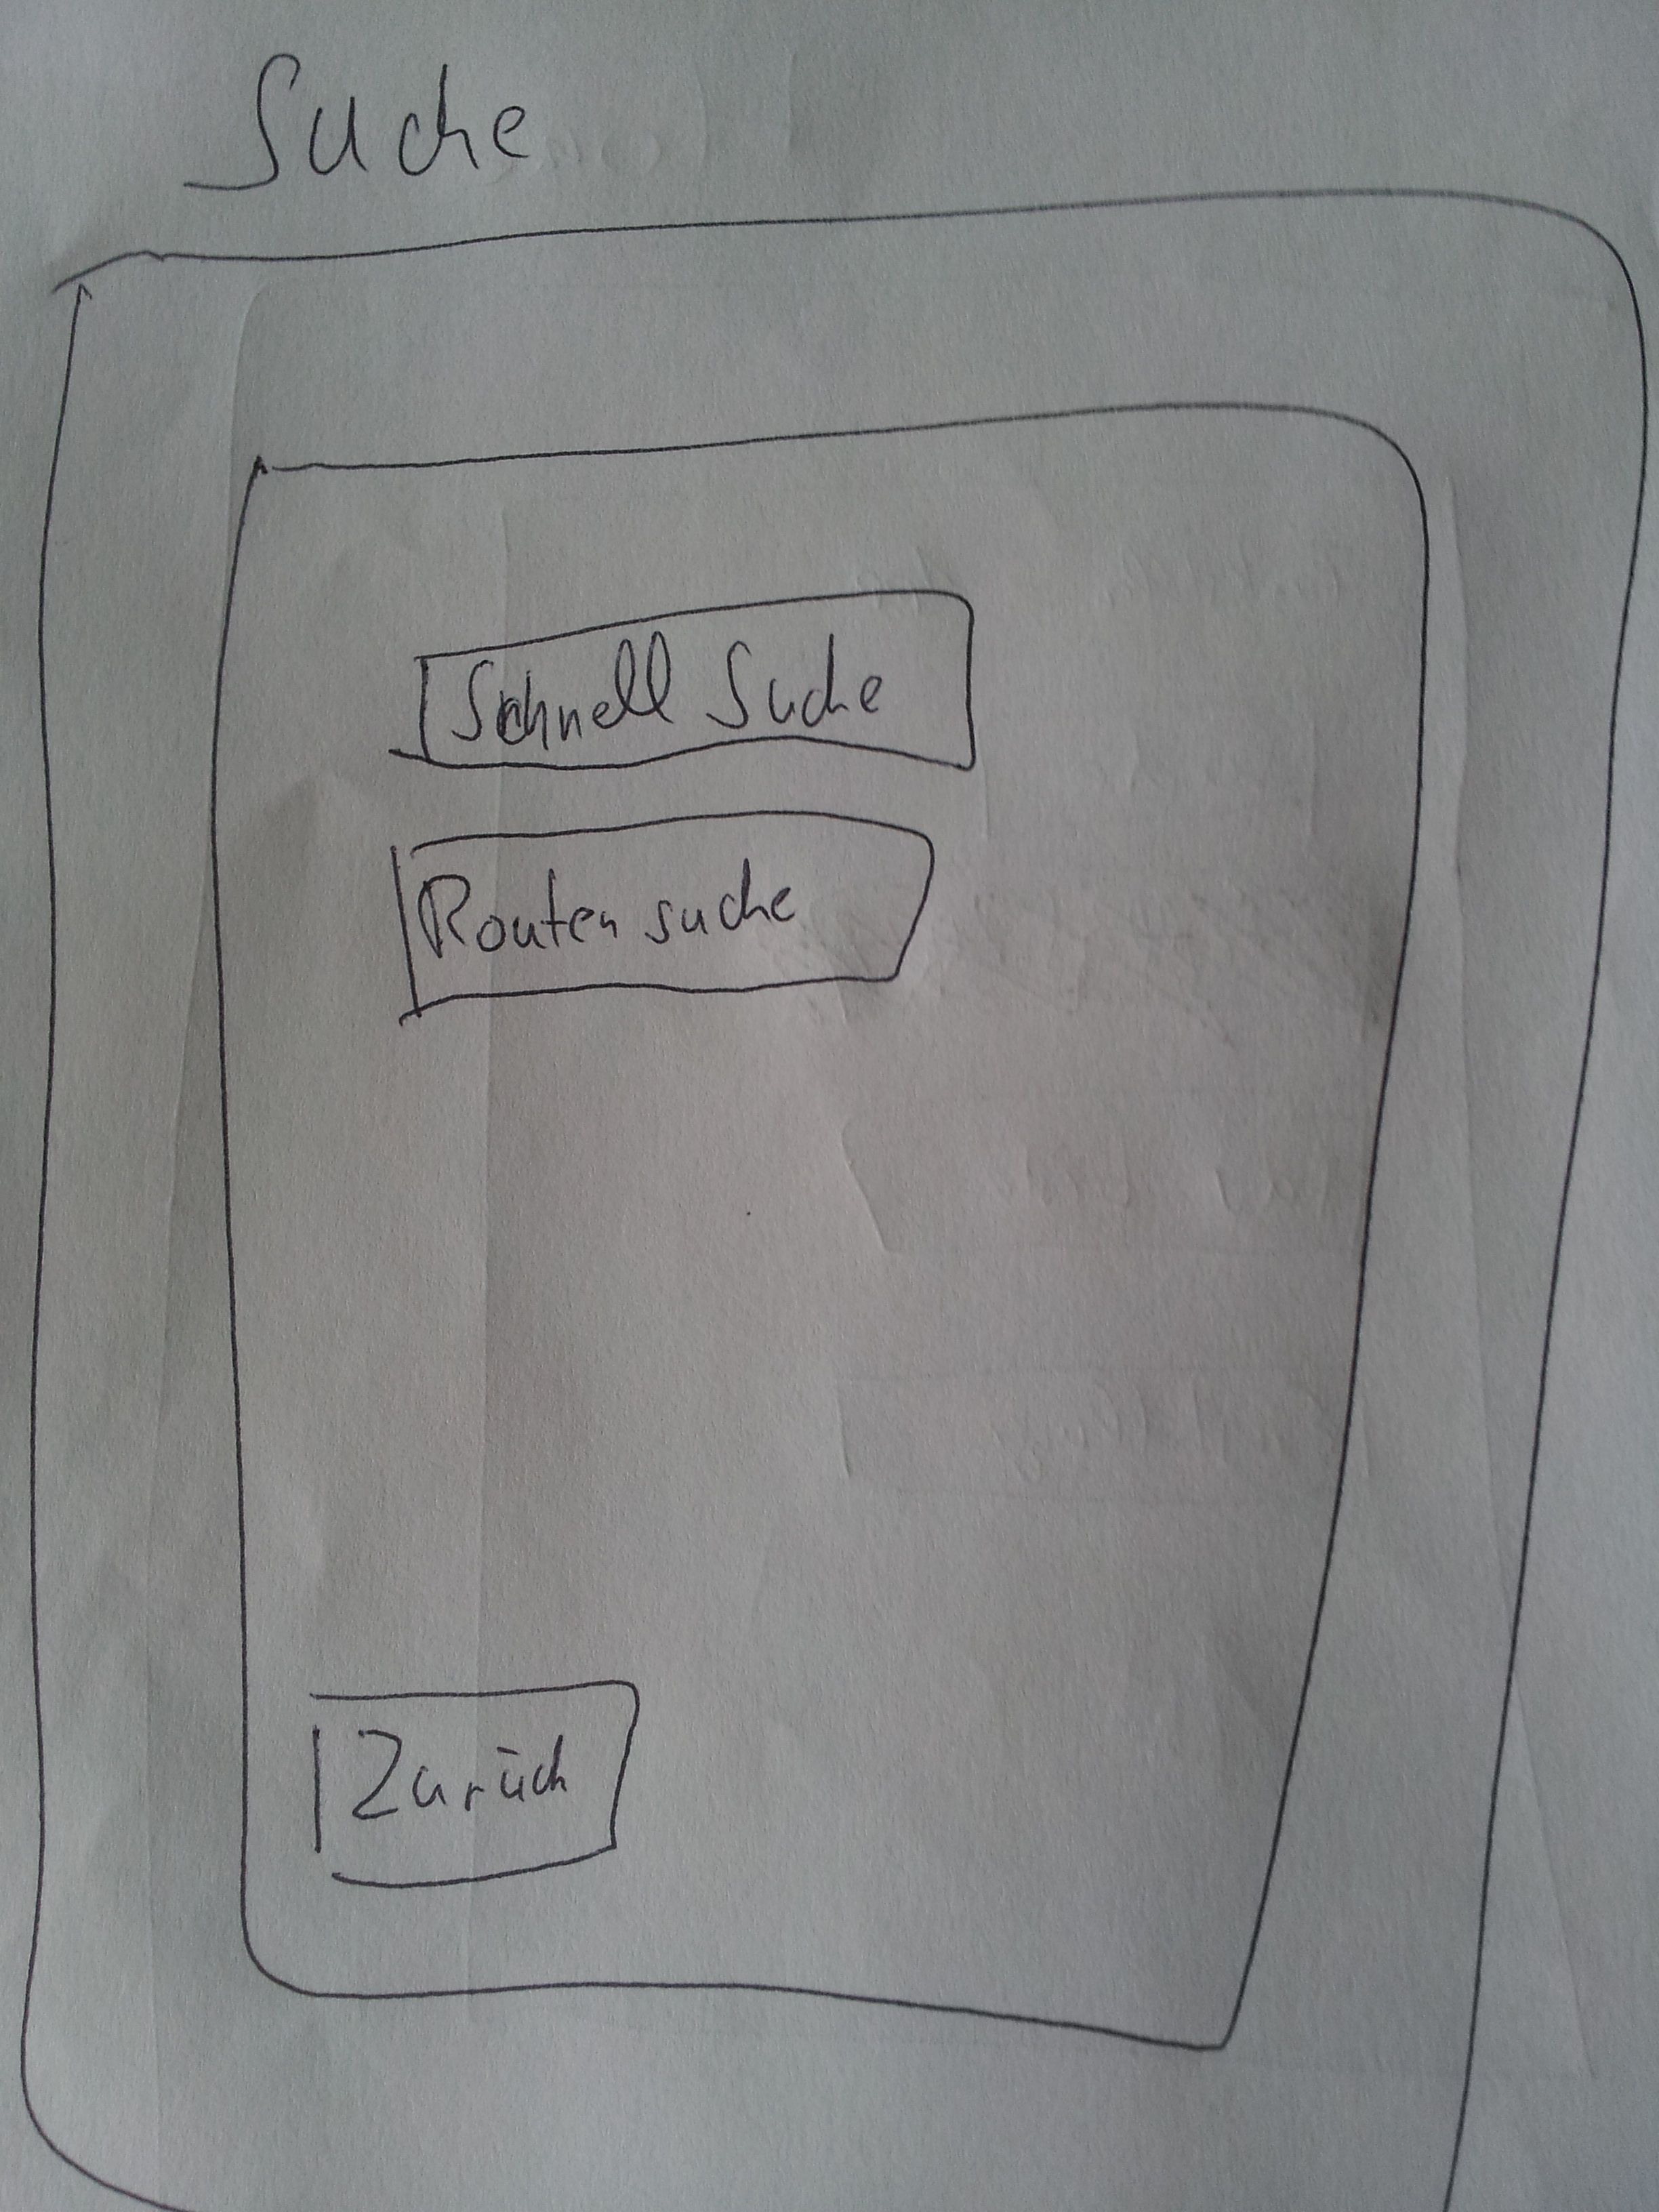 Suche
Schnell Suche
Routen suche
Zurück